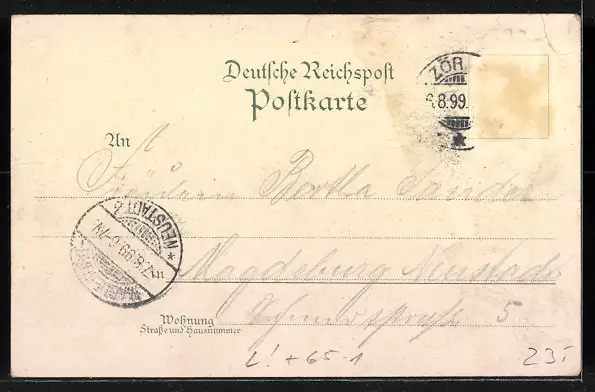 Deutsche Reichspost
Postkarte
ZÖR
8.99.
An
Fräulein Bertha Sander
NEUSTADT
7.8.99.6-7V.
in Magdeburg Neustadt
Wohnung
Straße und Hausnummer
5
L! + 65-1
23,-